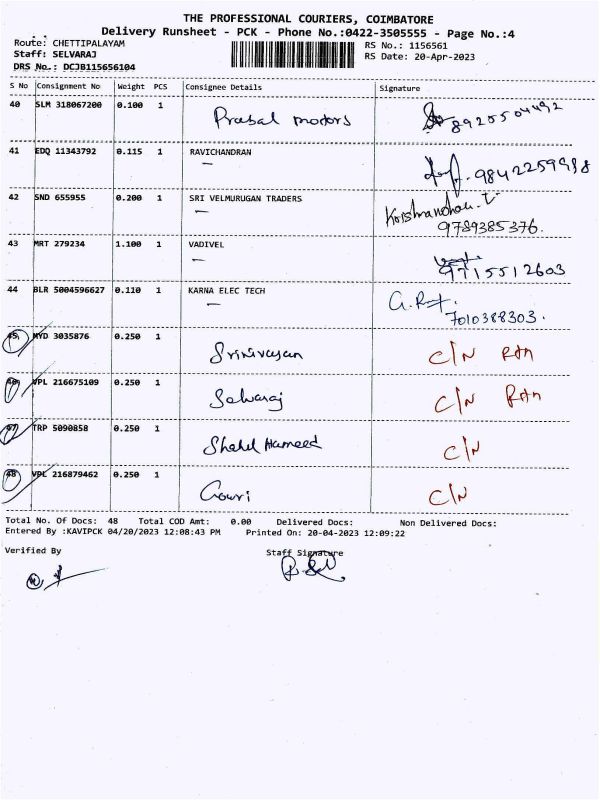 THE PROFESSIONAL COURIERS, COIMBATORE
Delivery Runsheet - PCK - Phone No.:0422-3505555 - Page No.:4
Route: CHETTIPALAYAM
RS No.: 1156561
Staff: SELVARAJ
RS Date: 20-Apr-2023
DRS No.: DCJB115656104
S No Consignment No Weight PCS Consignee Details Signature
40 SLM 318067200 0.100 1 Prabal motors 8925504492
41 EDQ 11343792 0.115 1 RAVICHANDRAN
— 9842259998
42 SND 655955 0.200 1 SRI VELMURUGAN TRADERS
— 9789385376.
43 MRT 279234 1.100 1 VADIVEL
— 9715512603
44 BLR 5004596627 0.110 1 KARNA ELEC TECH
— 7010388303.
45 MYD 3035876 0.250 1 Srinivasan C/N
46 VPL 216675109 0.250 1 Selvaraj C/N
47 TRP 5090858 0.250 1 Shahul Hameed C/N
48 VPL 216879462 0.250 1 Gouri C/N
Total No. Of Docs: 48 Total COD Amt: 0.00 Delivered Docs: Non Delivered Docs:
Entered By :KAVIPCK 04/20/2023 12:08:43 PM Printed On: 20-04-2023 12:09:22
Verified By Staff Signature